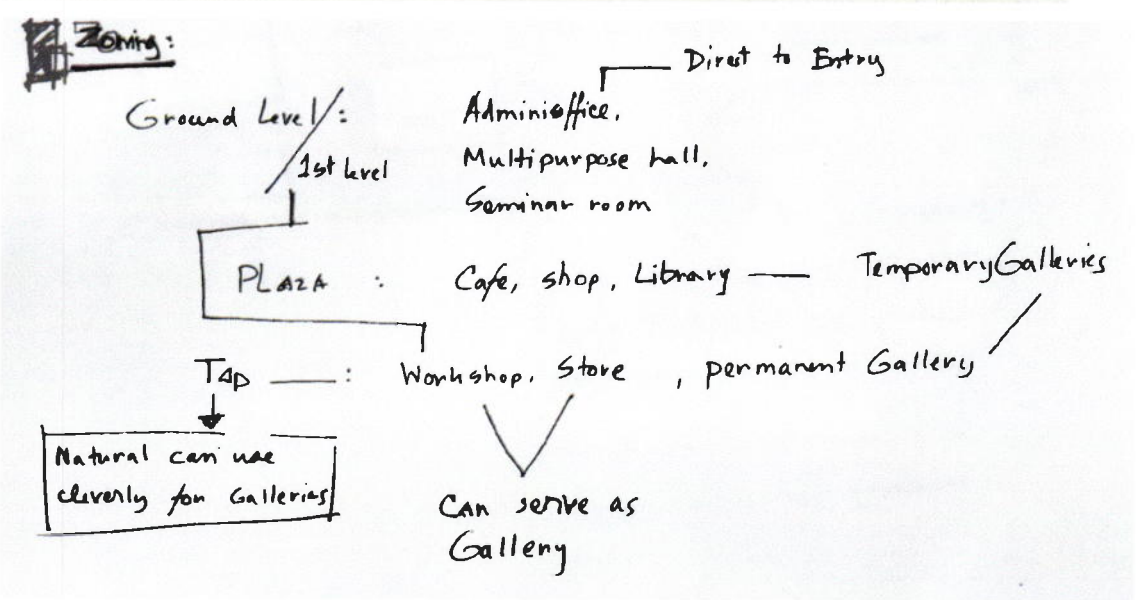 Zoning:
Direct to Entry
Ground Level/: Adminioffice,
1st level Multipurpose hall,
Seminar room
PLAZA : Cafe, shop, Library — Temporary Galleries
Top — : Workshop, Store , permanent Gallery
Natural can use
cleverly for Galleries
Can serve as
Gallery